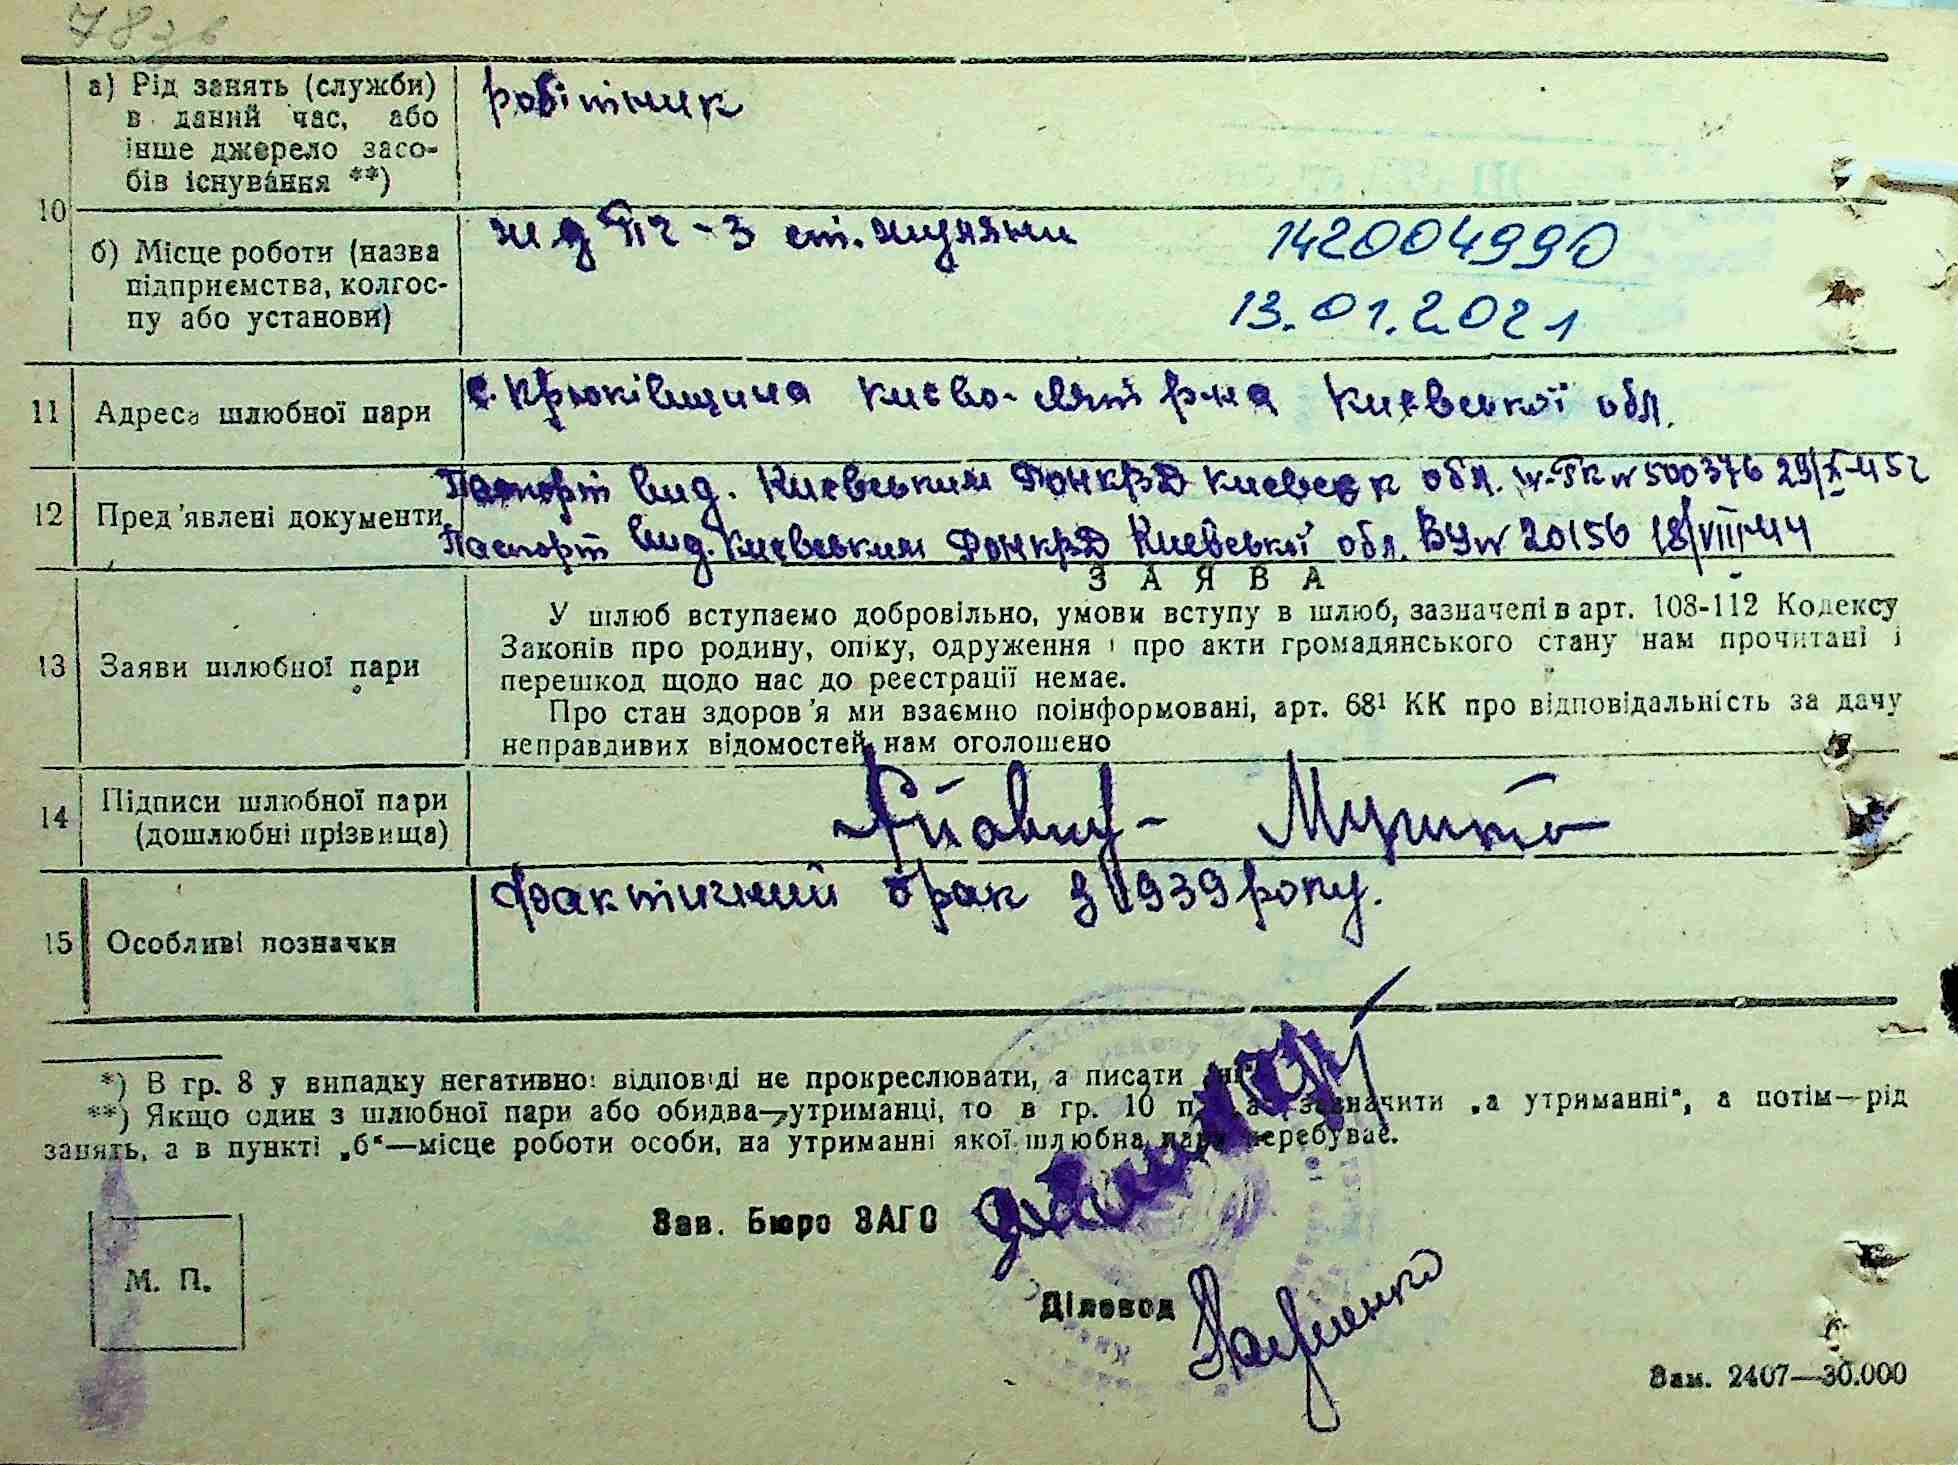 78зв
а) Рід занять (служби)
в даний час, або
інше джерело засо-
бів існування **)
робітник
10
б) Місце роботи (назва
підприємства, колгос-
пу або установи)
жд ПЧ-3 ст. жуляни
142004990
13.01.2021
11 Адреса шлюбної пари
с. Крюківщина Києво-свят р-на Київської обл.
12 Пред'явлені документи
Паспорт вид. Київським РОНКВД обл. № 500376 29/X-45г
Паспорт вид. Київським РОНКВД Київської обл. № 20156 18/VIII-44
ЗАЯВА
13 Заяви шлюбної пари
У шлюб вступаємо добровільно, умови вступу в шлюб, зазначені в арт. 108-112 Кодексу
Законів про родину, опіку, одруження і про акти громадянського стану нам прочитані і
перешкод щодо нас до реєстрації немає.
Про стан здоров'я ми взаємно поінформовані, арт. 68¹ КК про відповідальність за дачу
неправдивих відомостей нам оголошено
14 Підписи шлюбної пари
(дошлюбні прізвища)
15 Особливі позначки
Фактичний брак з 1939 року.
*) В гр. 8 у випадку негативної відповіді не прокреслювати, а писати
**) Якщо один з шлюбної пари або обидва—утриманці, то в гр. 10 зазначити „а утриманні“, а потім—рід
занять, а в пункті „б“—місце роботи особи, на утриманні якої шлюбна пара перебуває.
Зав. Бюро ЗАГС
М. П.
Діловод
Зам. 2407—30.000